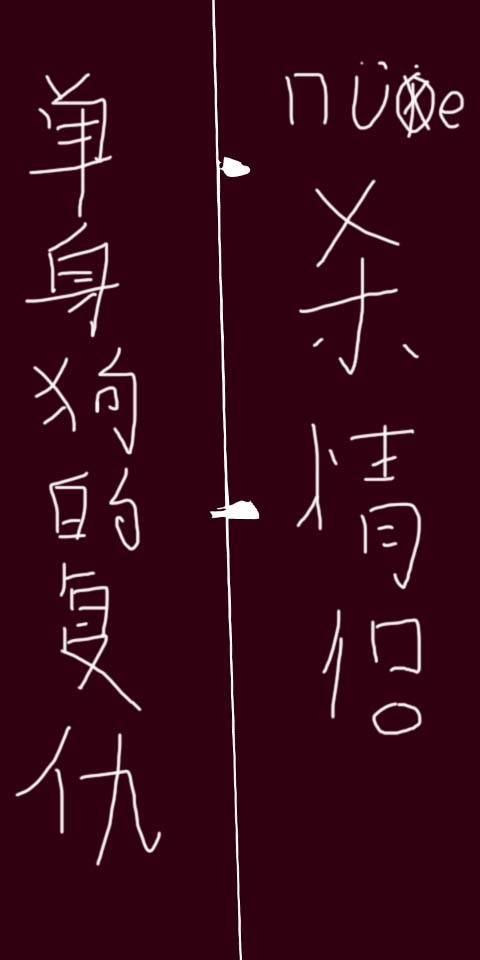 单身狗的复仇
nüe杀情侣